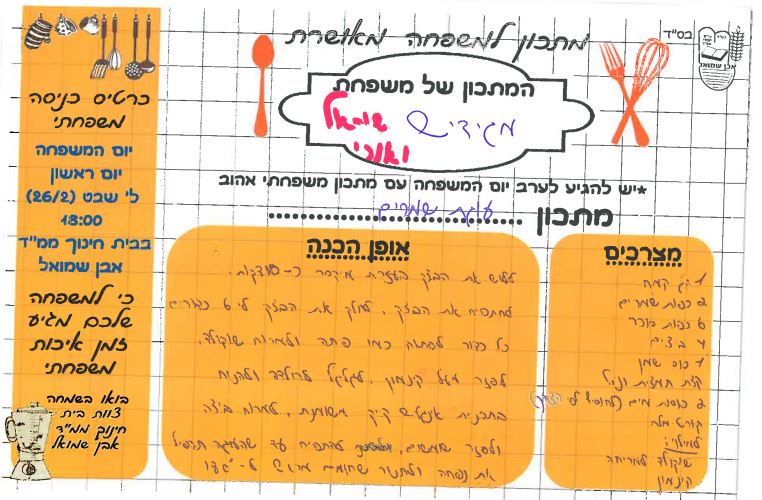 בס"ד
אבן שמואל
מתכון למשפחה מאושרת
המתכון של משפחת
מגידיש
שמואל
ואורי
*יש להגיע לערב יום המשפחה עם מתכון משפחתי אהוב
מתכון עוגת שמרים
מצרכים
1 קג קמח
2 כפות שמרים
6 כפות סוכר
4 ביצים
1 כוס שמן
קצת תמצית וניל
2 כוסות מים (להוסיף לפי הצורך)
קורט מלח
למילוי:
שוקולד למריחה
קינמון
אופן הכנה
ללוש את הבצק בעזרת מיקסר כ-10 דקות.
להתפיח את הבצק, לחלק את הבצק ל-6 כדורים
כל כדור לפתוח כמו פיתה ולמרוח שוקולד,
לפזר מעל קינמון, לגלגל לרולדה ולהניח
בתבנית אינגליש קייק משומנת, למרוח ביצה
ולפזר שומשום, להתפיח עד שהעוגה תכפיל
את נפחה ולתנור שחומם מראש ל-180°
כרטיס כניסה
משפחתי
יום המשפחה
יום ראשון
ל' שבט (26/2)
18:00
בבית חינוך ממ"ד
אבן שמואל
כי למשפחה
שלכם מגיע
זמן איכות
משפחתי
בואו בשמחה
צוות בית
חינוך ממ"ד
אבן שמואל